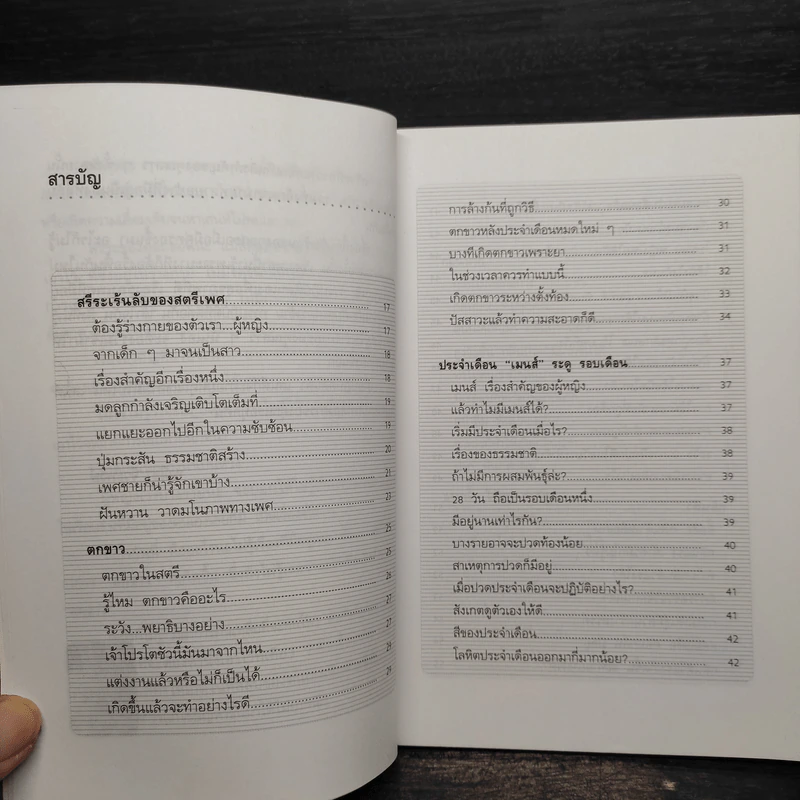 สารบัญ
สรีระเร้นลับของสตรีเพศ 17
ต้องรู้ร่างกายของตัวเรา...ผู้หญิง 17
จากเด็ก ๆ มาจนเป็นสาว 18
เรื่องสำคัญอีกเรื่องหนึ่ง 18
มดลูกกำลังเจริญเติบโตเต็มที่ 19
แยกแยะออกไปอีกในความซับซ้อน 19
ปุ่มกระสัน ธรรมชาติสร้าง 20
เพศชายก็น่ารู้จักเขาบ้าง 21
ฝันหวาน วาดมโนภาพทางเพศ 23
ตกขาว 25
ตกขาวในสตรี 25
รู้ไหม ตกขาวคืออะไร 26
ระวัง...พยาธิบางอย่าง 27
เจ้าโปรโตซัวนี้มันมาจากไหน 27
แต่งงานแล้วหรือไม่ก็เป็นได้ 29
เกิดขึ้นแล้วจะทำอย่างไรดี 29
การล้างก้นที่ถูกวิธี 30
ตกขาวหลังประจำเดือนหมดใหม่ ๆ 31
บางทีเกิดตกขาวเพราะยา 31
ในช่วงเวลาควรทำแบบนี้ 32
เกิดตกขาวระหว่างตั้งท้อง 33
ปัสสาวะแล้วทำความสะอาดก็ดี 34
ประจำเดือน "เมนส์" ระดู รอบเดือน 37
เมนส์ เรื่องสำคัญของผู้หญิง 37
แล้วทำไมมีเมนส์ได้? 37
เริ่มมีประจำเดือนเมื่อไร? 38
เรื่องของธรรมชาติ 38
ถ้าไม่มีการผสมพันธุ์ล่ะ? 39
28 วัน ถือเป็นรอบเดือนหนึ่ง 39
มีอยู่นานเท่าไรกัน? 39
บางรายอาจจะปวดท้องน้อย 40
สาเหตุการปวดก็มีอยู่ 40
เมื่อปวดประจำเดือนจะปฏิบัติอย่างไร? 41
สังเกตดูตัวเองให้ดี 41
สีของประจำเดือน 42
โลหิตประจำเดือนออกมาที่มากน้อย? 42